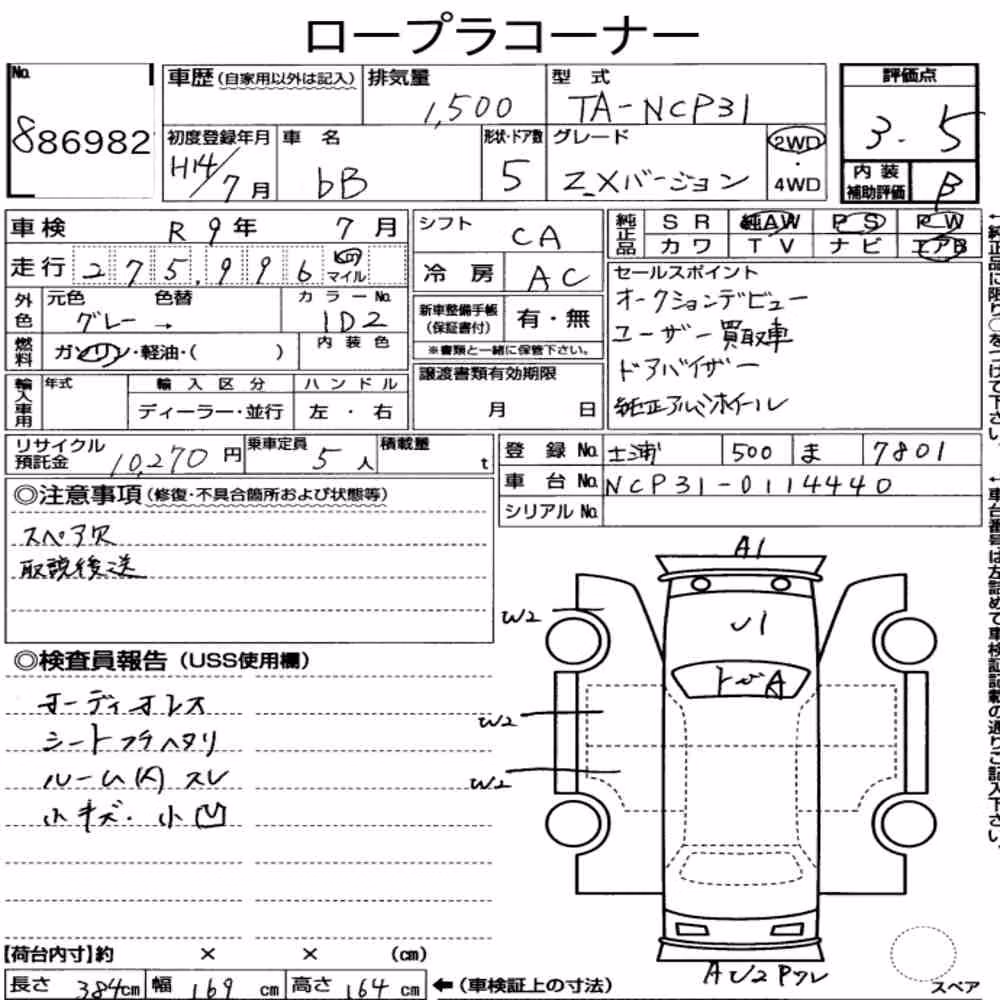 ロープラコーナー
No.
886982
車歴 (自家用以外は記入)
排気量
1,500
型式
TA-NCP31
評価点
3.5
初度登録年月
H14/7月
車名
bB
形状・ドア数
5
グレード
Z Xバージョン
2WD
・
4WD
内装
補助評価
B
車検
R 9年 7月
走行 275,996 km マイル
外色
元色 色替
グレー →
カラーNo.
1D2
燃料
ガソリン・軽油・( )
内装色
輸入車用
年式
輸入区分
ディーラー・並行
ハンドル
左・右
シフト
CA
冷房
AC
新車整備手帳
(保証書付)
有・無
※書類と一緒に保管下さい。
譲渡書類有効期限
月 日
純正品
SR 純AW PS PW
カワ TV ナビ エアB
セールスポイント
オークションデビュー
ユーザー買取車
ドアバイザー
純正アルミホイール
←純正品に限り○をつけて下さい。
リサイクル
預託金
10,270円
乗車定員
5人
積載量
t
登録No.
土浦 500 ま 7801
車台No.
NCP31-0114440
シリアルNo.
←車台番号は左詰めて車検証記載の通りご記入下さい。
◎注意事項 (修復・不具合箇所および状態等)
スペア欠
取説後送
◎検査員報告 (USS使用欄)
オーディオレス
シートフチヘタリ
ルーム(内)スレ
小キズ・小凹
A1
W2
U1
トビA
W2
W2
AU2Pクレ
スペア
【荷台内寸】約 × × (cm)
長さ 384cm 幅 169cm 高さ 164cm ←(車検証上の寸法)